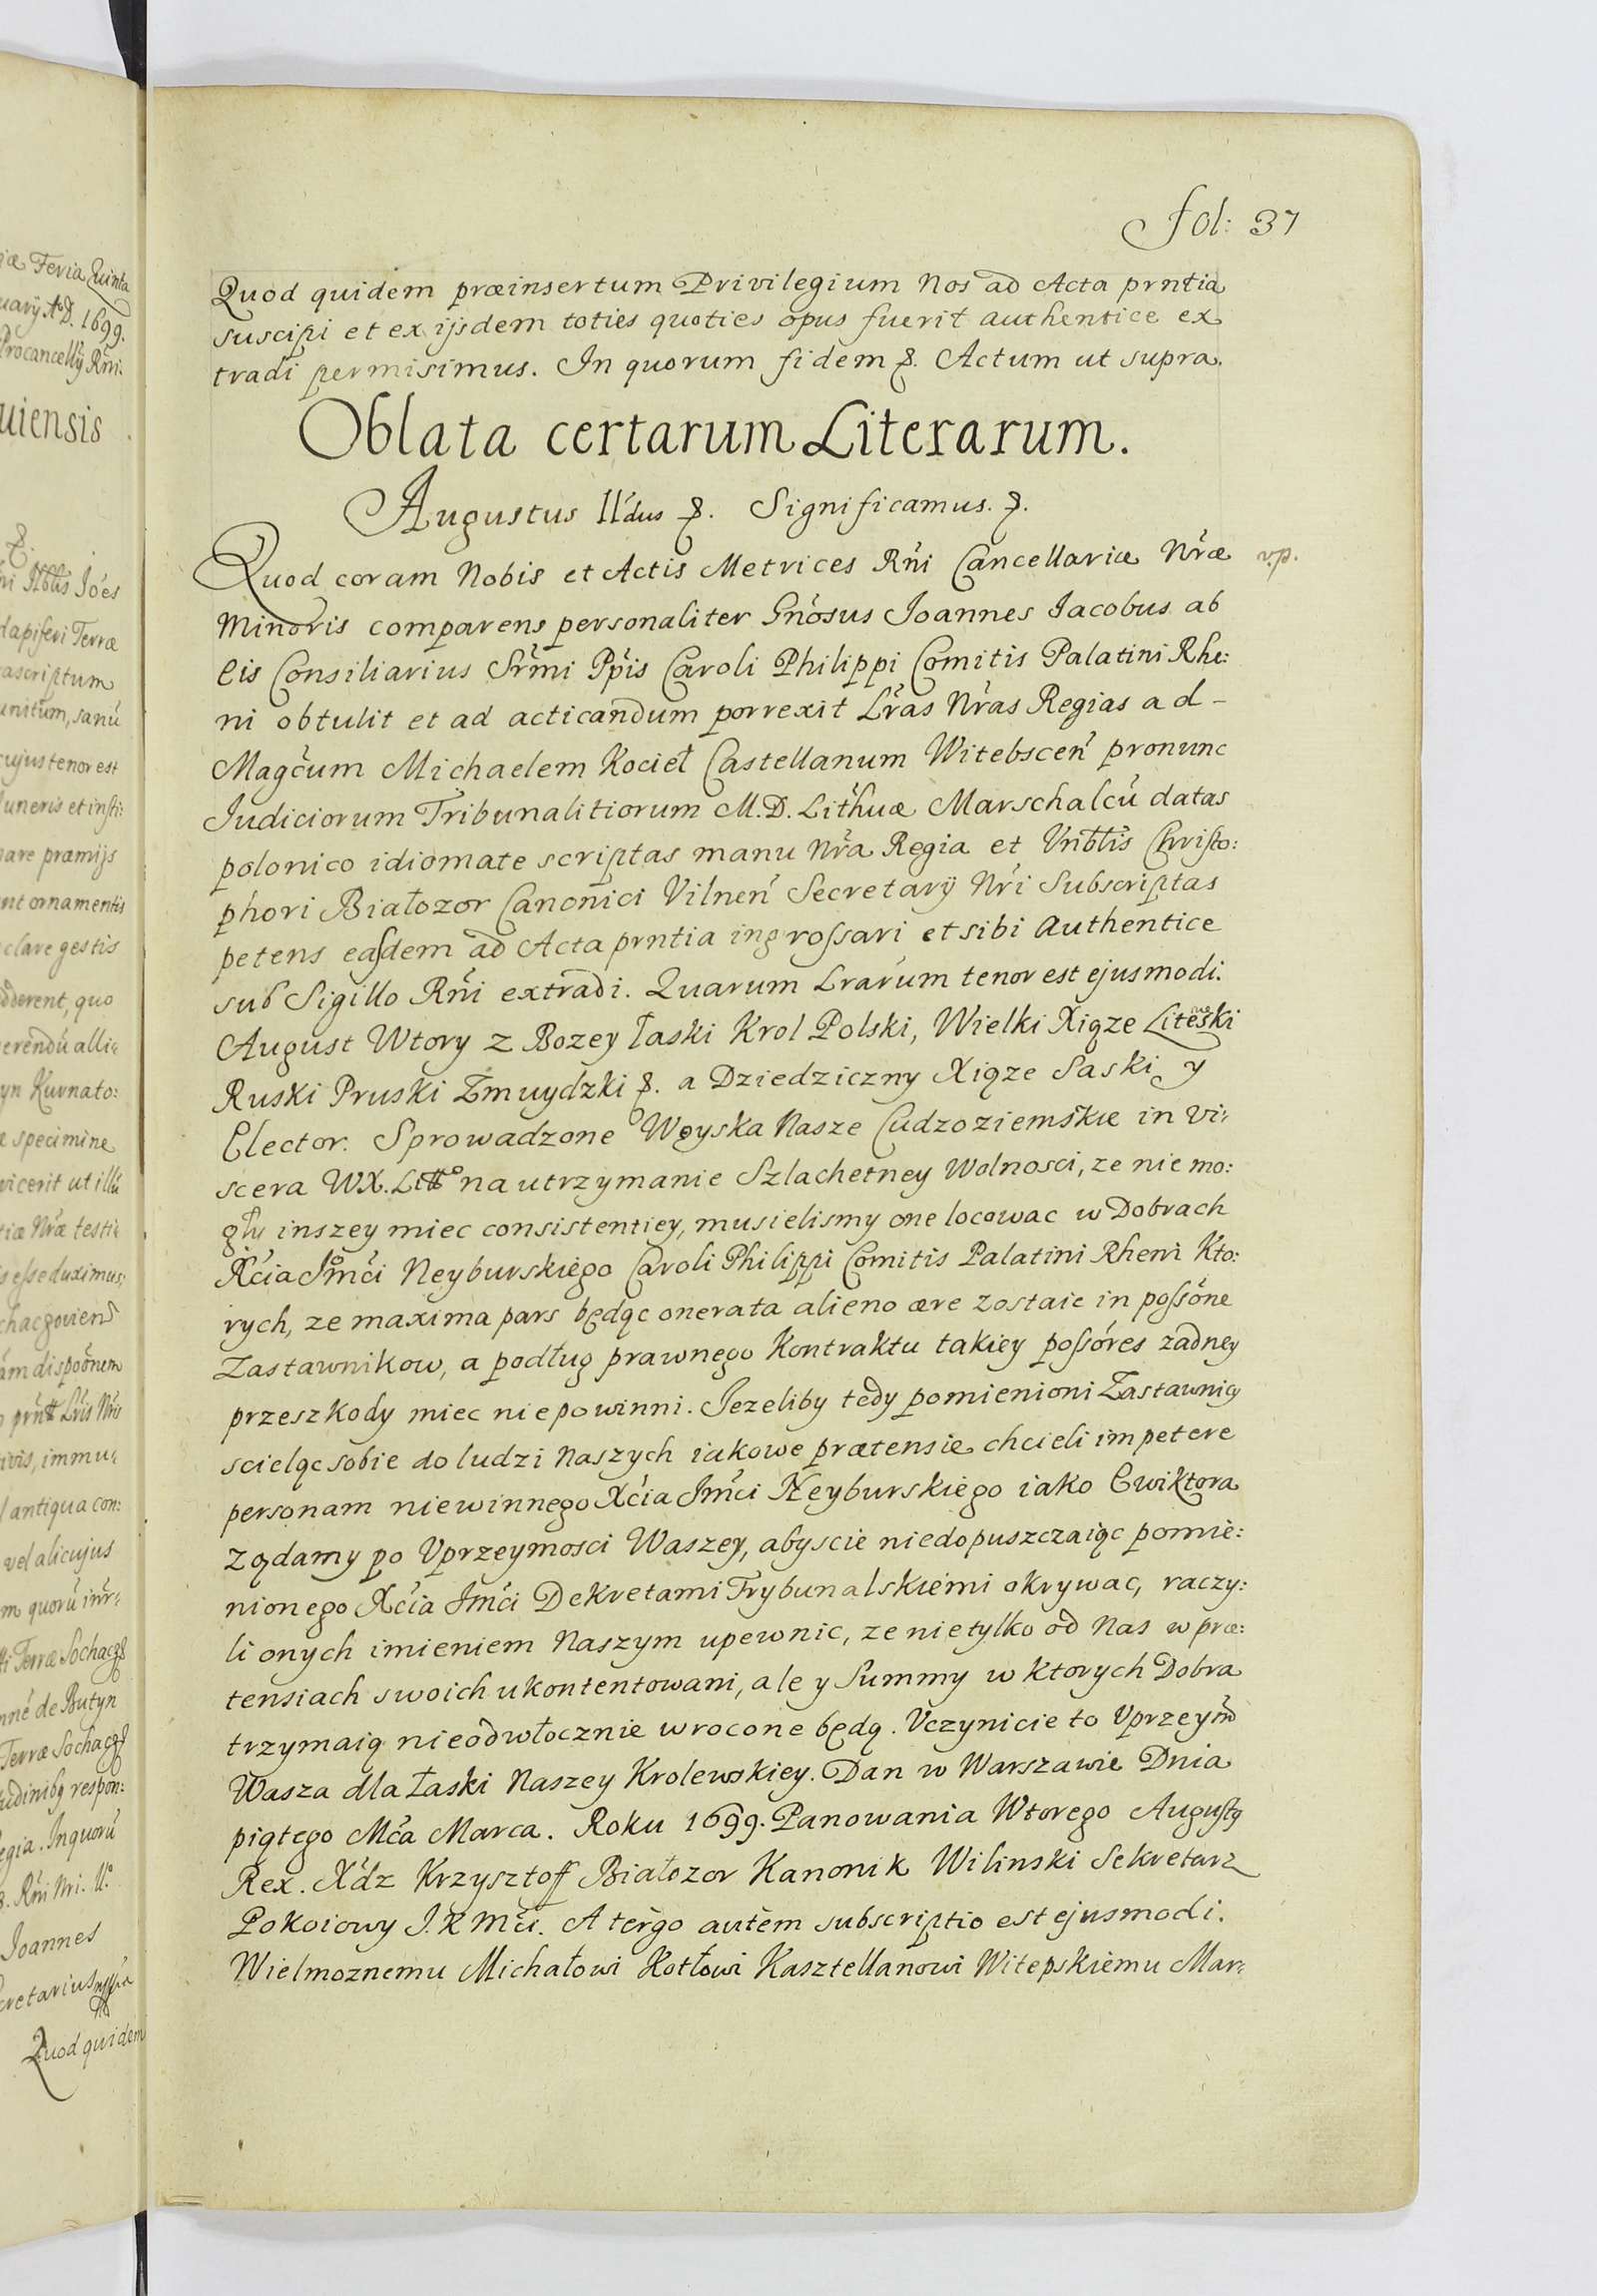 iæ Feria Quinta
uarij A.D. 1699.
Procancellij Rñi.
uiensis
Nobis Jóes
dapiferi Terræ
ascriptum
unitum, sanú
cujus tenor est
uneris et insti:
pare pramijs
nt ornamentis
clare gestis
dderent, quo
erendú alli:
yn Kurnato:
e specimine
vicerit ut illú
tiæ Nræ testi:
s esse duximus,
chacgovien
ám dispoõnem
ivis, immu:
antiqua con:
vel alicujus
m quorú inr:
ti Terræ Sochacg
nné de Butyn
Terræ Sochacg
udinibg respon:
egia. In quorú
Rñi Nri.
Joannes
cretarius mppa
Quod quidem
fol: 37
Quod quidem præinsertum Privilegium Nos ad Acta prntia
suscipi et ex ijsdem toties quoties opus fuerit authentice ex
tradi permisimus. In quorum fidem &. Actum ut supra.
Oblata certarum Literarum.
Augustus IIdus &. Significamus. &.
Quod coram Nobis et Actis Metrices Rñi Cancellariæ Nræ v.p.
Minoris comparens personaliter Gnosus Joannes Jacobus ab
Eis Consiliarius Srmi Ppis Caroli Philippi Comitis Palatini Rhe:
ni obtulit et ad acticandum porrexit Lras Nras Regias ad -
Magcum Michaelem Kocieł Castellanum Witebscen pronunc
Judiciorum Tribunalitiorum M.D. Lithuæ Marschalcú datas
polonico idiomate scriptas manu Nra Regia et Vnblis Christo:
phori Białozor Canonici Vilnen Secretarij Nri Subscriptas
petens easdem ad Acta prntia ingrossari et sibi Authentice
sub Sigillo Rñi extradi. Quarum Lrarum tenor est ejusmodi.
August Wtory z Bozey łaski Krol Polski, Wielki Xiąze Liteski
Ruski Pruski Zmuydzki &. a Dziedziczny Xiąze Saski y
Elector. Sprowadzone Woyska Nasze Cudzoziemskie in vi:
scera WX. Litto na utrzymanie Szlachetney Wolnosci, ze nie mo:
gły inszey miec consistentiey, musielismy one locowac w Dobrach
Xcia Jmci Neyburskiego Caroli Philippi Comitis Palatini Rheni Kto:
rych, ze maxima pars będąc onerata alieno ære zostaie in possóne
Zastawnikow, a podług prawnego Kontraktu takiey possóres zadney
przeszkody miec nie powinni. Jezeliby tedy pomienioni Zastawnicy
scieląc sobie do ludzi Naszych iakowe prætensie chcieli impetere
personam niewinnego Xcia Jmci Neyburskiego iako Ewiktora
Ządamy po Vprzeymosci Waszey, abyscie niedopuszczaiąc pomie:
nionego Xcia Jmci Dekretami Trybunalskiemi okrywac, raczy:
li onych imieniem Naszym upewnic, ze nie tylko od Nas w præ:
tensiach swoich ukontentowani, ale y Summy w ktorych Dobra
trzymaią nieodwłocznie wrocone będą. Vczynicie to Vprzeym
Wasza dla łaski Naszey Krolewskiey. Dan w Warszawie Dnia
piątego Mca Marca. Roku 1699. Panowania Wtorego Augustg
Rex. Xdz Krzysztoff Białozor Kanonik Wilinski Sekretarz
Pokoiowy J.K Mci. A tergo autem subscriptio est ejusmodi.
Wielmoznemu Michałowi Kotłowi Kasztellanowi Witepskiemu Mar: